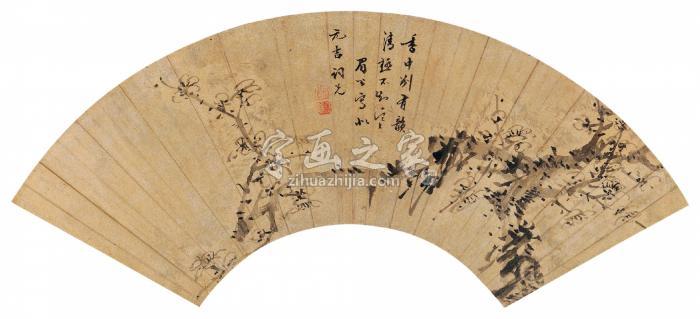 香中別有韻
清極不知寒
眉公寫似
元吉詞兄
字画之家
zihuazhijia.com